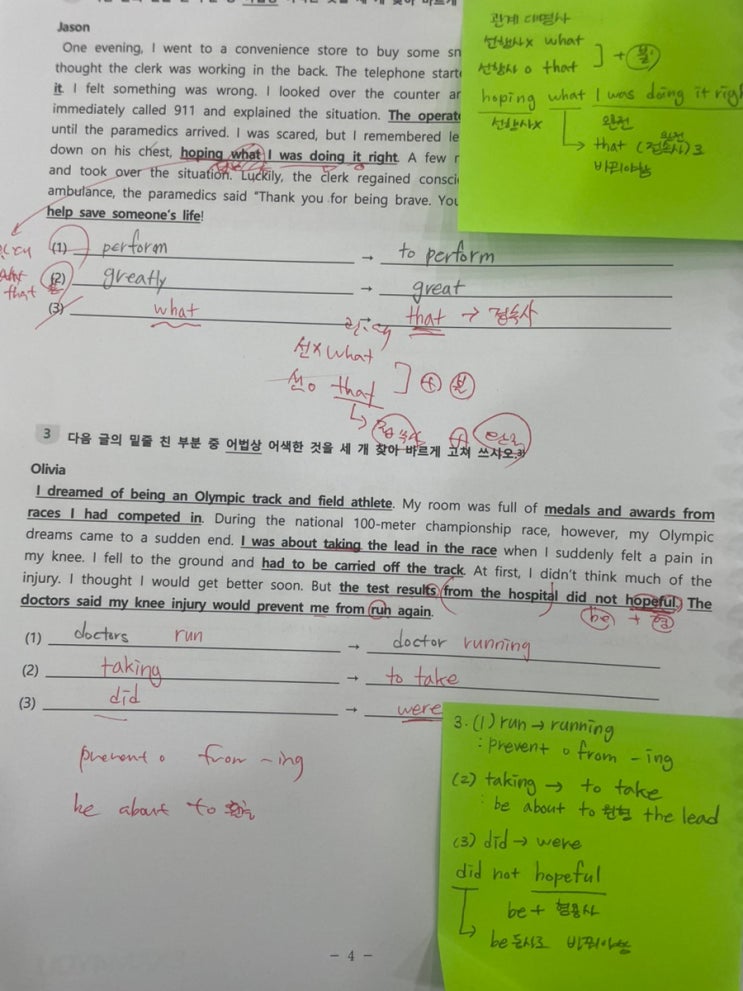 Jason
One evening, I went to a convenience store to buy some sn
thought the clerk was working in the back. The telephone start
it. I felt something was wrong. I looked over the counter an
immediately called 911 and explained the situation. The operat
until the paramedics arrived. I was scared, but I remembered le
down on his chest, hoping what I was doing it right. A few
and took over the situation. Luckily, the clerk regained consci
ambulance, the paramedics said "Thank you for being brave. You
help save someone's life!
관계 대명사
선행사x what
선행사 o that ] + 불
hoping what I was doing it righ
선행사x 완전
that (접속사)로
완전
바꿔야함
(1) perform → to perform
(2) greatly → great
(3) what → that → 접속사
that
선x what
선o that ] + 불
접속사 + 완전
3 다음 글의 밑줄 친 부분 중 어법상 어색한 것을 세 개 찾아 바르게 고쳐 쓰시오.3)
Olivia
I dreamed of being an Olympic track and field athlete. My room was full of medals and awards from
races I had competed in. During the national 100-meter championship race, however, my Olympic
dreams came to a sudden end. I was about taking the lead in the race when I suddenly felt a pain in
my knee. I fell to the ground and had to be carried off the track. At first, I didn't think much of the
injury. I thought I would get better soon. But the test results from the hospital did not hopeful. The
doctors said my knee injury would prevent me from run again.
be + 형
(1) doctors run → doctor running
(2) taking → to take
(3) did → were
prevent o from -ing
be about to
3. (1) run → running
: prevent o from -ing
(2) taking → to take
: be about to 원형 the lead
(3) did → were
did not hopeful
be + 형용사
be동사로 바꿔야함
- 4 -